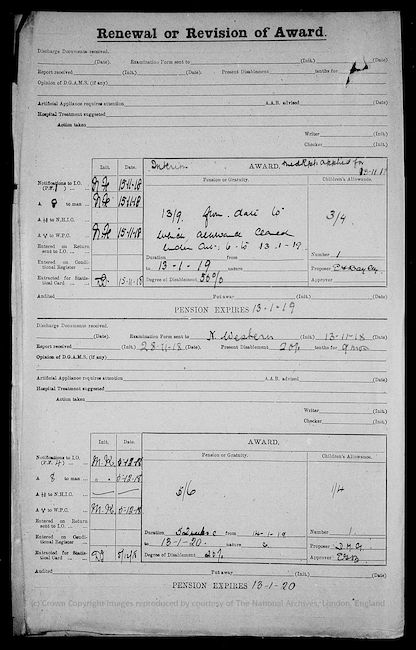 Renewal or Revision of Award.
Discharge Documents received.
(Date). Examination Form sent to (Init.) (Date).
Report received (Init.) (Date). Present Disablement tenths for
Opinion of D.G.A.M.S. (if any)
Artificial Appliance requires attention A.A.B. advised (Date).
Hospital Treatment suggested
Action taken
Writer (Init.)
Checker (Init.)
Init. Date. Interim AWARD. 13-11-18
Pension or Gratuity. Children's Allowance.
Notifications to I.O. 15-11-18
A 8 to man 15-11-18
13/9 from date to 3/4
A to N.H.I.C.
which allowance ceased
A to W.P.C. 15-11-18
under 6 to 13.1.19.
Entered on Return sent to I.O. Number 1
Duration from
Entered on Conditional Register to 13-1-19 nature Proposer
Extracted for Statistical Card 15-11-18 Degree of Disablement 50% Approver
Audited Put away (Init.) (Date).
PENSION EXPIRES 13-1-19
Discharge Documents received.
(Date). Examination Form sent to N. Western (Init.) 13-11-18 (Date).
Report received 28-11-18 (Init.) (Date). Present Disablement 20% tenths for 9 mos
Opinion of D.G.A.M.S. (if any)
Artificial Appliance requires attention A.A.B. advised (Date).
Hospital Treatment suggested
Action taken
Writer (Init.)
Checker (Init.)
Init. Date. AWARD.
Pension or Gratuity. Children's Allowance.
Notifications to I.O. (P.F. 4)
A 8 to man
A to N.H.I.C. 5/6 1/4
A to W.P.C.
Entered on Return sent to I.O. Duration from 14-1-19 Number 1
Entered on Conditional Register to 13-1-20. nature Proposer
Extracted for Statistical Card Degree of Disablement 20% Approver
Audited Put away (Init.) (Date).
PENSION EXPIRES 13-1-20
(c) Crown Copyright Images reproduced by courtesy of The National Archives, London, England